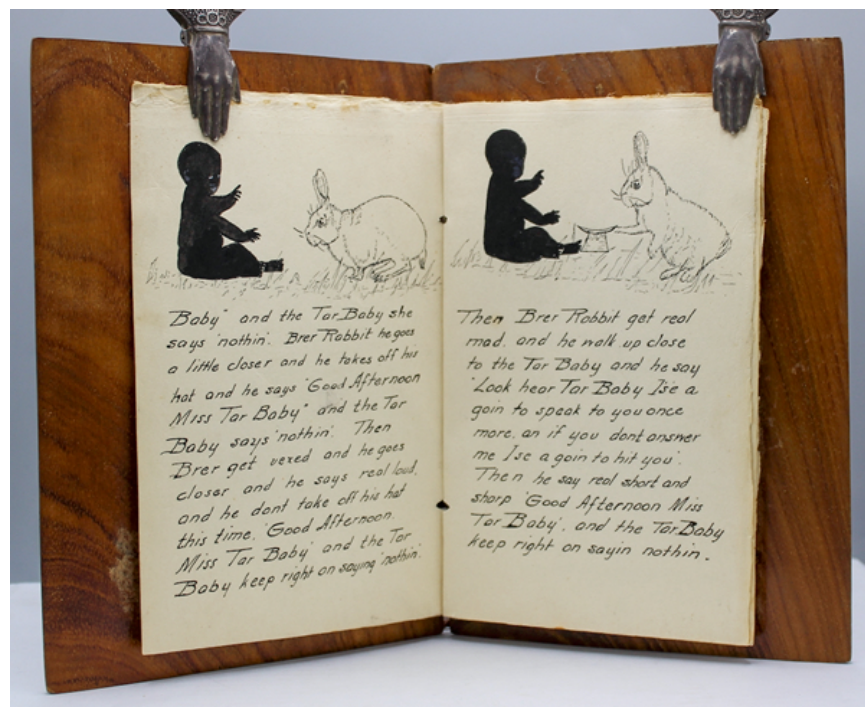 Baby" and the Tar Baby she
says 'nothin'. Brer Rabbit he goes
a little closer and he takes off his
hat and he says "Good Afternoon
Miss Tar Baby" and the Tar
Baby says 'nothin'. Then
Brer get vexed and he goes
closer, and he says real loud,
and he dont take off his hat
this time, 'Good Afternoon,
Miss Tar Baby' and the Tar
Baby keep right on saying 'nothin'.
Then Brer Rabbit get real
mad, and he walk up close
to the Tar Baby and he say
'Look hear Tar Baby I'se a
goin to speak to you once
more, an if you dont answer
me Ise a goin to hit you'.
Then he say real short and
sharp 'Good Afternoon Miss
Tar Baby', and the Tar Baby
keep right on sayin nothin.